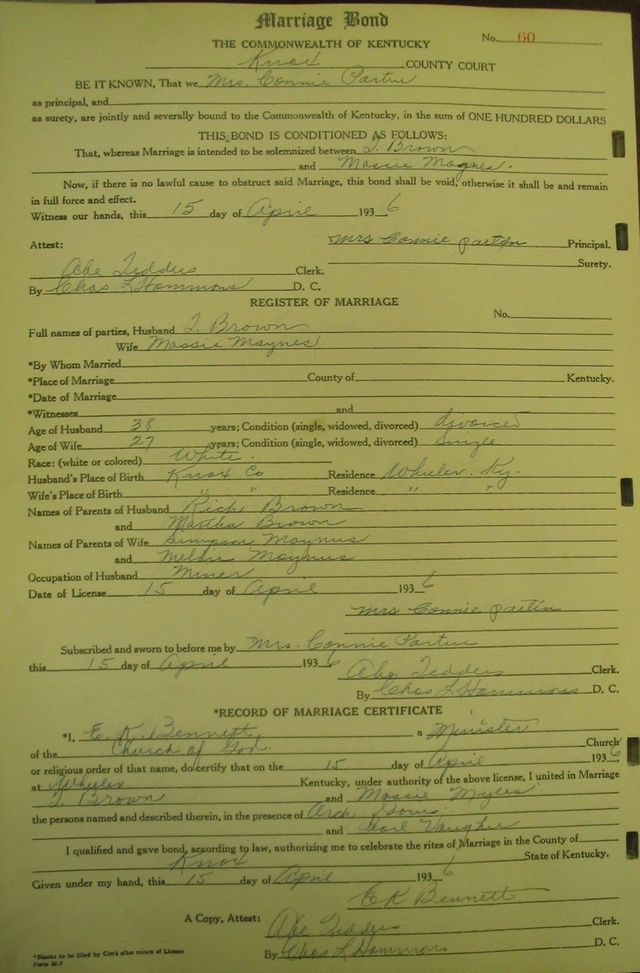 Marriage Bond
THE COMMONWEALTH OF KENTUCKY No. 60
Knox COUNTY COURT
BE IT KNOWN, That we Mrs. Connie Partin
as principal, and
as surety, are jointly and severally bound to the Commonwealth of Kentucky, in the sum of ONE HUNDRED DOLLARS
THIS BOND IS CONDITIONED AS FOLLOWS:
That, whereas Marriage is intended to be solemnized between T. Brown
and Massie Maynes.
Now, if there is no lawful cause to obstruct said Marriage, this bond shall be void, otherwise it shall be and remain
in full force and effect.
Witness our hands, this 15 day of April 1936
Attest: Mrs Connie partin Principal.
Surety.
Abe Tedders Clerk.
By Chas L Hammons D. C.
REGISTER OF MARRIAGE
No.
Full names of parties, Husband T. Brown
Wife Massie Maynes
*By Whom Married
*Place of Marriage County of Kentucky.
*Date of Marriage
*Witnesses and
Age of Husband 38 years; Condition (single, widowed, divorced) divorced
Age of Wife 27 years; Condition (single, widowed, divorced) Single
Race: (white or colored) White.
Husband's Place of Birth Knox Co Residence Wheeler, Ky.
Wife's Place of Birth " " Residence " "
Names of Parents of Husband Rich Brown
and Martha Brown
Names of Parents of Wife Simpson Maynus
and Maynus
Occupation of Husband Miner
Date of License 15 day of April 1936
Mrs Connie partin
Subscribed and sworn to before me by Mrs. Connie Partin
this 15 day of April 1936 Abe Tedders Clerk.
By Chas L Hammons D. C.
*RECORD OF MARRIAGE CERTIFICATE
*I, E. K. Bennett a Minister
of the Church of God. Church
or religious order of that name, do certify that on the 15 day of April 1936
at Wheeler Kentucky, under authority of the above license, I united in Marriage
T. Brown and Massie Myles
the persons named and described therein, in the presence of Arch
and Vaughn
I qualified and gave bond, according to law, authorizing me to celebrate the rites of Marriage in the County of
Knox State of Kentucky.
Given under my hand, this 15 day of April 1936
E K Bennett
A Copy, Attest: Abe Tedders Clerk.
By Chas L Hammons D. C.
*Blanks to be filled by Clerk after return of License
Form M-7